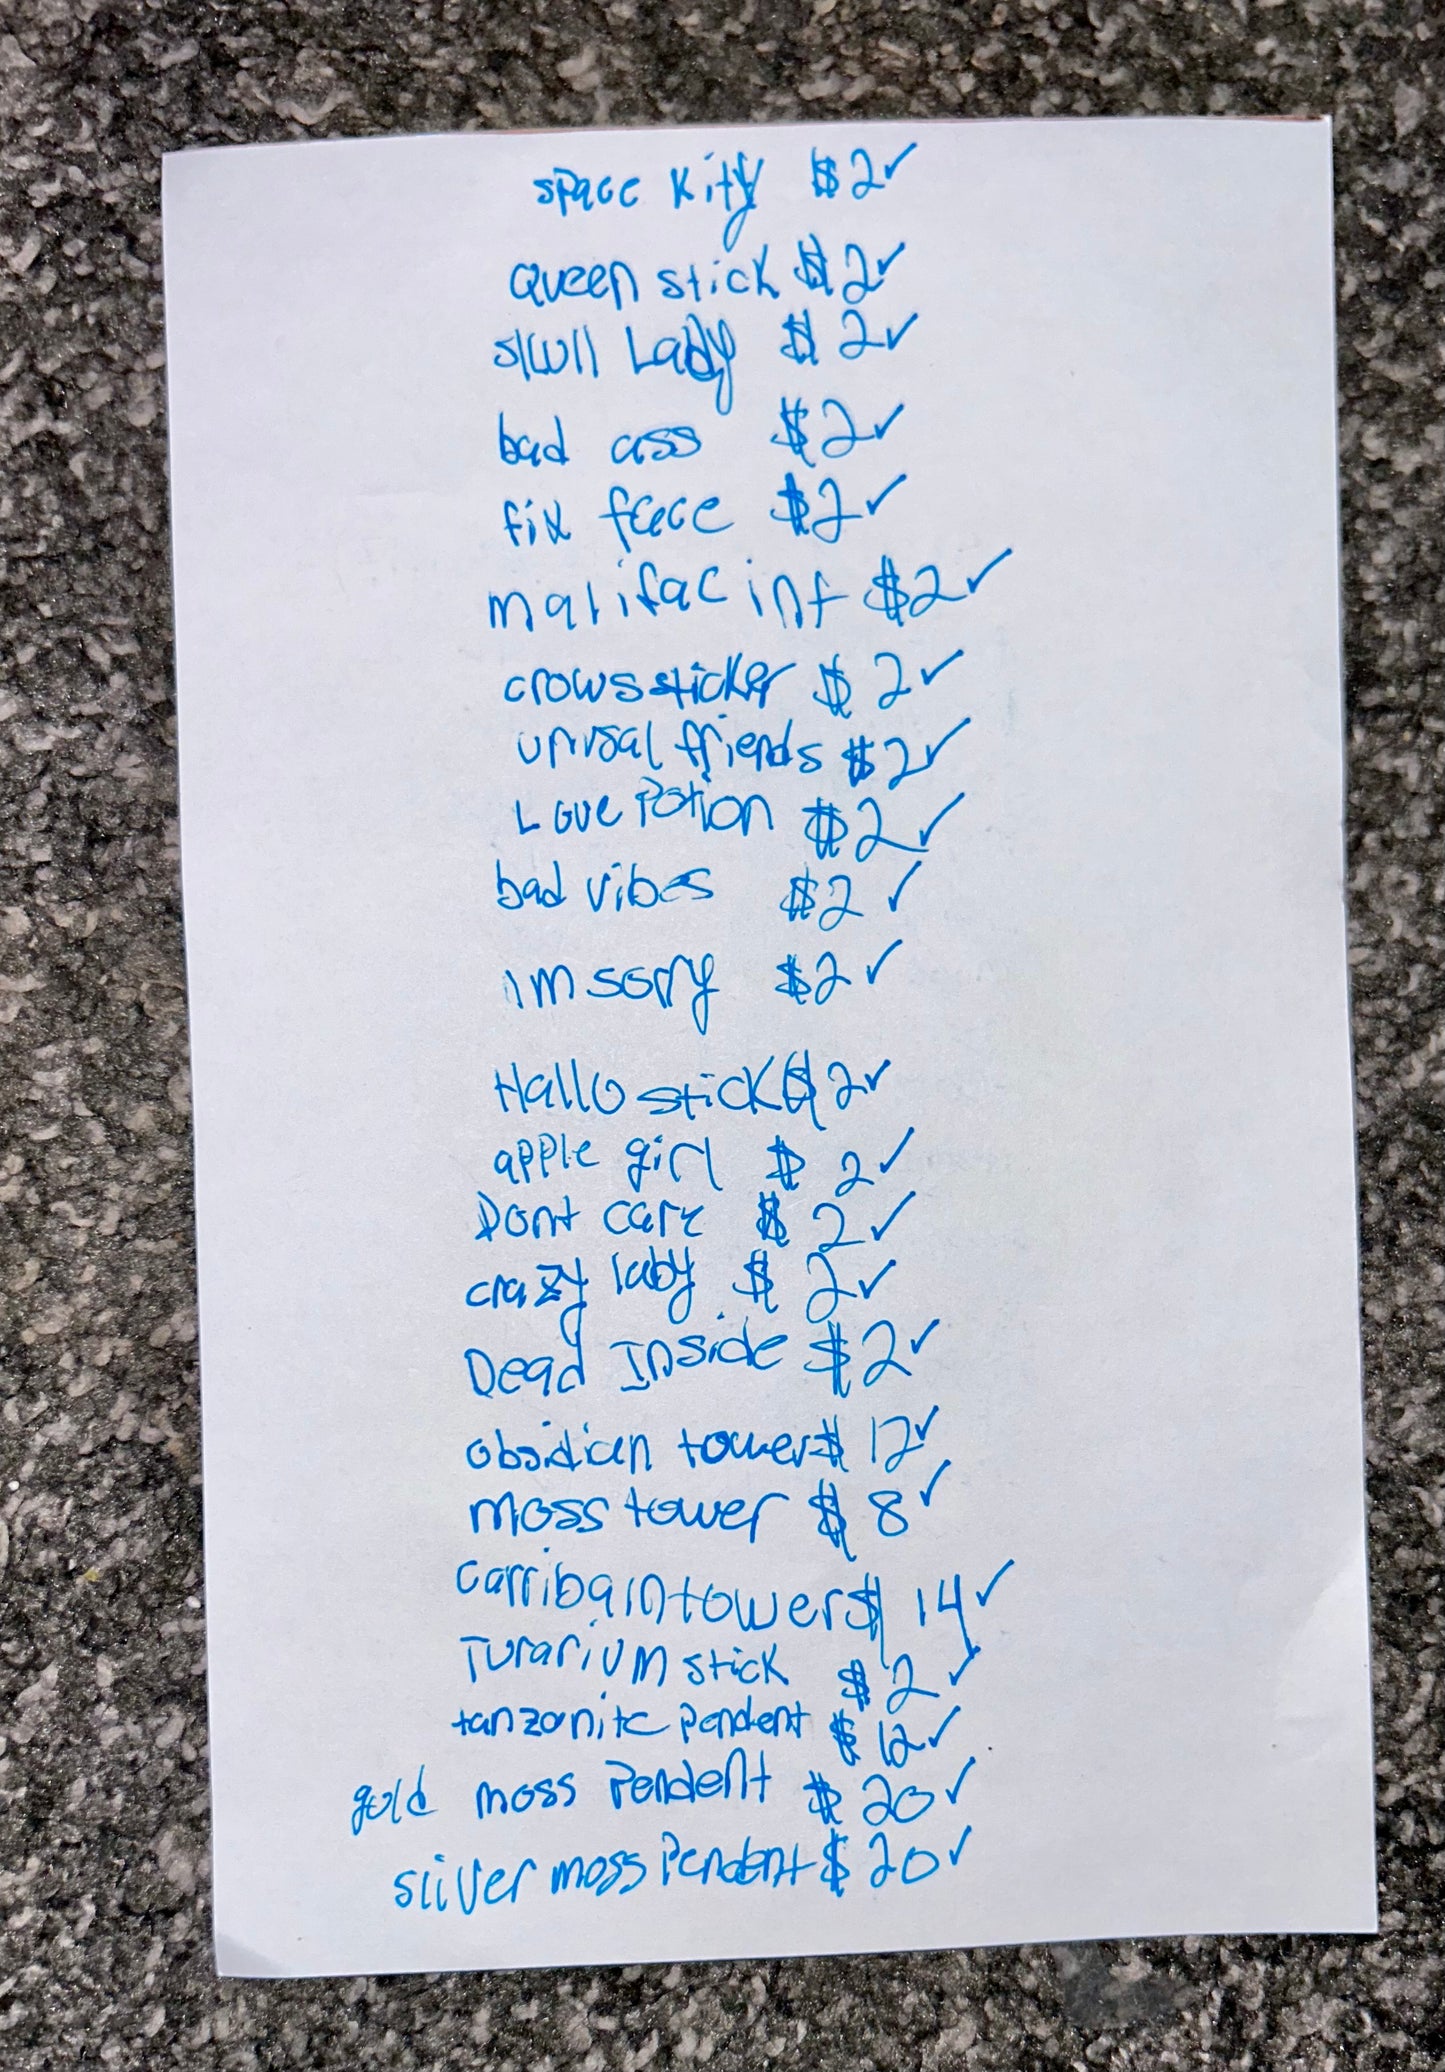 space kity $2✓
Queen stick $2✓
skull Lady $2✓
bad ass $2✓
fix face $2✓
malifacint $2✓
crows sticker $2✓
friends $2✓
Love Potion $2✓
bad vibes $2✓
im sorry $2✓
Hallo stick $2✓
apple girl $2✓
Dont care $2✓
crazy laby $2✓
Dead Inside $2✓
obsidian tower $12✓
moss tower $8✓
carribain tower $14✓
Turarium stick $2✓
tanzonite Pendent $12✓
gold moss Pendent $20✓
silver moss Pendent $20✓